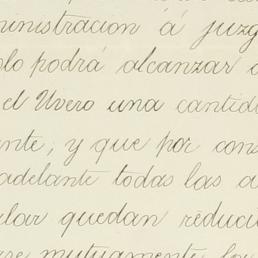 ministracion á juzg
lo podrá alcanzar
el Uvero una cantid
ente, y que por cons
adelante todas las a
ular quedan reduci
mutuamente